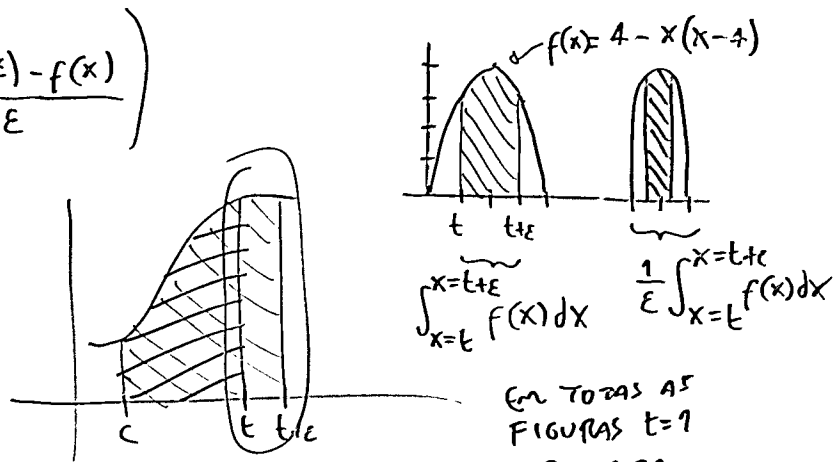 ε) - f(x)
ε
f(x) = 4 - x(x-4)
t t+ε
∫_{x=t}^{x=t+ε} f(x) dx
1/ε ∫_{x=t}^{x=t+ε} f(x) dx
c t t+ε
EM TODAS AS
FIGURAS t=1